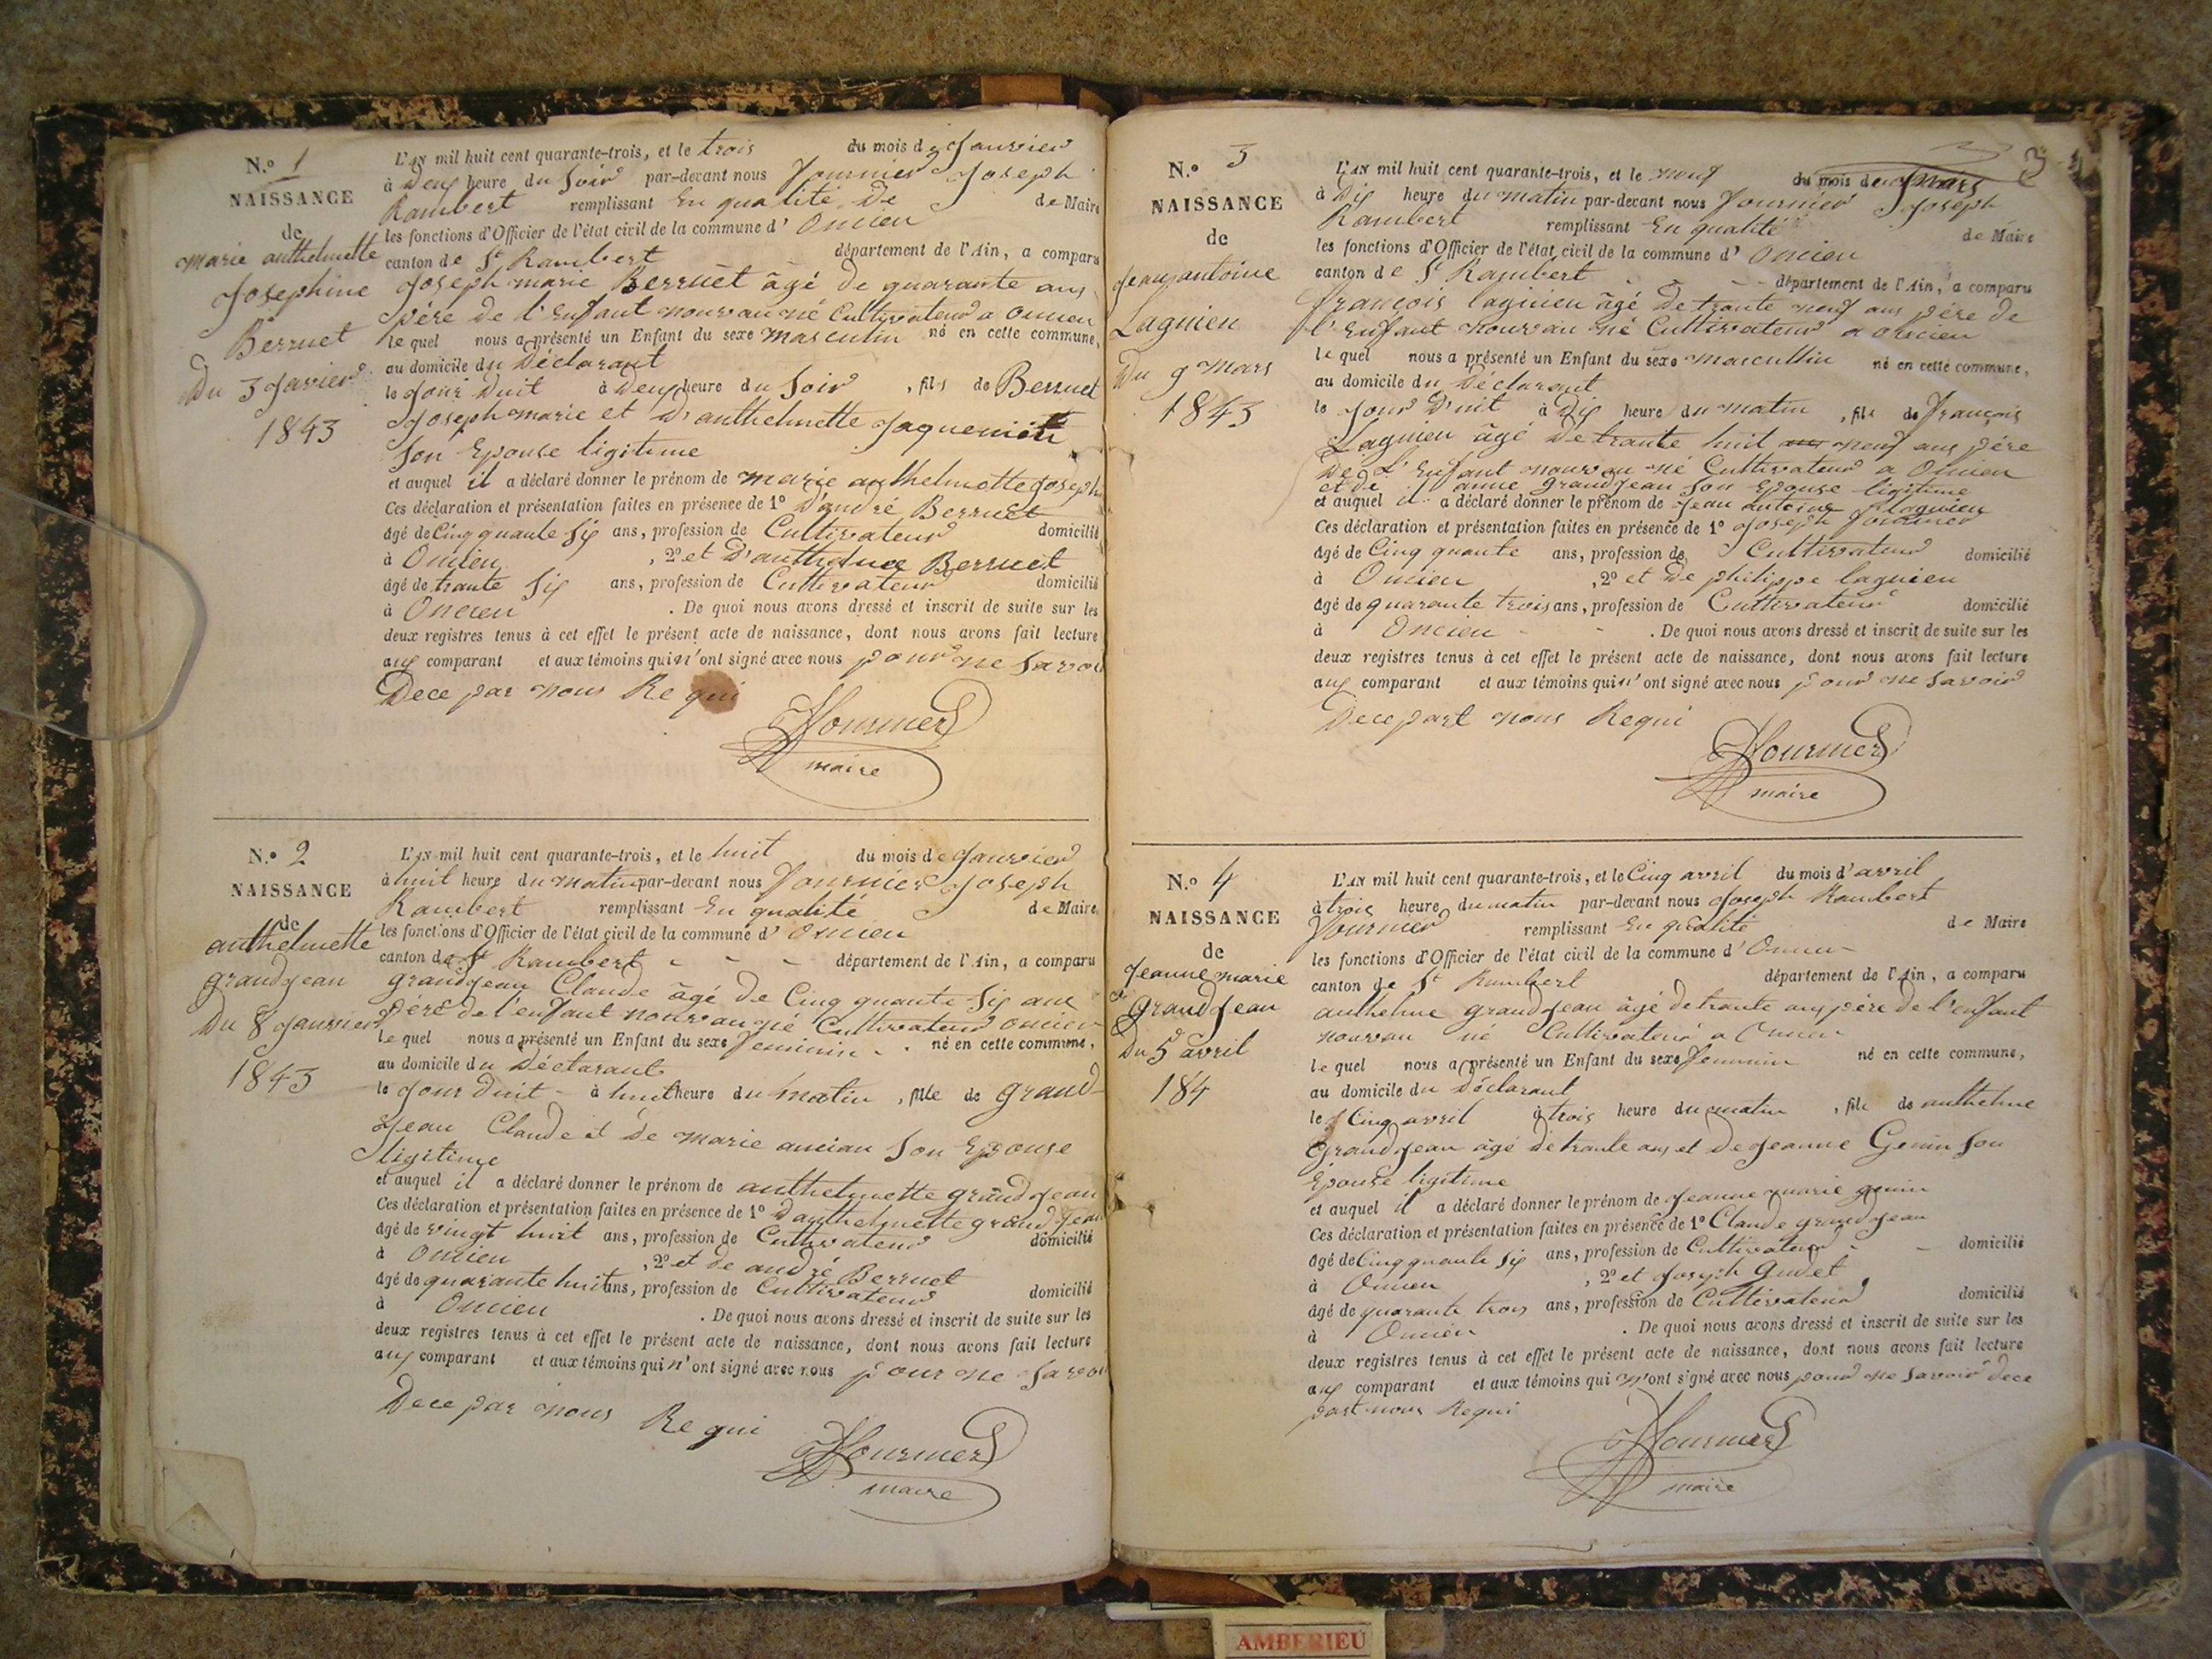 N.o 1
NAISSANCE
de
marie anthelmette
Josephine
Berruet
Du 3 Javier
1843
L'AN mil huit cent quarante-trois, et le trois du mois de Janvier
à Deux heure du Soir par-devant nous Fournier Joseph
Rambert remplissant En qualité De de Maire
les fonctions d'Officier de l'état civil de la commune d' Oncieu
canton de St Rambert département de l'Ain, a comparu
Joseph marie Berruet âgé de quarante ans
père de l'Enfant nouvau né Cultivateur a oncieu
le quel nous a présenté un Enfant du sexe masculin né en cette commune,
au domicile du Déclarant
le Jour Duit à Deux heure du Soir , fils de Berruet
Joseph marie et D'anthelmette Jaquemin
Son Epouse ligitime
et auquel il a déclaré donner le prénom de marie anthelmette Joseph
Ces déclaration et présentation faites en présence de 1o D'andré Berruet
âgé de Cinq quante Six ans, profession de Cultivateur domicilié
à Oncieu , 2o et D' Berruet
âgé de trante Six ans, profession de Cultivateur domicilié
à Oncieu . De quoi nous avons dressé et inscrit de suite sur les
deux registres tenus à cet effet le présent acte de naissance, dont nous avons fait lecture
aux comparant et aux témoins qui n'ont signé avec nous pour ne Savoir
Dece par nous Re qui
Fournier
maire
N.o 2
NAISSANCE
de
anthelmette
grandjean
Du 8 Janvier
1843
L'AN mil huit cent quarante-trois, et le huit du mois de Janvier
à huit heure du matin par-devant nous Fournier Joseph
Rambert remplissant En qualité de Maire
les fonctions d'Officier de l'état civil de la commune d' Oncieu
canton de St Rambert - - - département de l'Ain, a comparu
grandjean Claude âgé De Cinq quante Six ans
père de l'enfant nouvau né Cultivateur oncieu
le quel nous a présenté un Enfant du sexe Feminin - . né en cette commune,
au domicile du Déclarant
le Jour Duit - à huit heure du matin , fille de grand-
Jean Claude et De marie ancian Son Epouse
ligitime
et auquel il a déclaré donner le prénom de anthelmette grand Jean
Ces déclaration et présentation faites en présence de 1o D'anthelmette grand Jean
âgé de vingt huit ans, profession de Cultivateur domicilié
à Oncieu , 2o et de andré Berruet
âgé de quarante huit ans, profession de Cultivateur domicilié
à Oncieu . De quoi nous avons dressé et inscrit de suite sur les
deux registres tenus à cet effet le présent acte de naissance, dont nous avons fait lecture
aux comparant et aux témoins qui n'ont signé avec nous pour ne Savoir
Dece par nous Re qui
Fournier
maire
3
N.o 3
NAISSANCE
de
Jean antoine
Lagnieu
Du 9 mars
1843
L'AN mil huit cent quarante-trois, et le neuf du mois de mars
à Dix heure du matin par-devant nous Fournier Joseph
Rambert remplissant En qualité de Maire
les fonctions d'Officier de l'état civil de la commune d' Oncieu
canton de St Rambert - - - département de l'Ain, a comparu
françois lagnieu âgé De trante neuf ans père de
l'Enfant nouvau né Cultivateur a oncieu
le quel nous a présenté un Enfant du sexe mascullin né en cette commune,
au domicile du Déclarant
le Jour D'uit à Dix heure du matin , fils de François
Lagnieu âgé De trante huit neuf ans père
De L'Enfant nouvau né Cultivateur a Oncieu
et de anne grandjean Son Epouse ligitime
et auquel il a déclaré donner le prénom de Jean antoine Lagnieu
Ces déclaration et présentation faites en présence de 1o Joseph Fournier
âgé de Cinq quante ans, profession de Cultivateur domicilié
à Oncieu , 2o et De philippe lagnieu
âgé de quarante trois ans, profession de Cultivateur domicilié
à Oncieu - - . De quoi nous avons dressé et inscrit de suite sur les
deux registres tenus à cet effet le présent acte de naissance, dont nous avons fait lecture
aux comparant et aux témoins qui n'ont signé avec nous pour ne Savoir
Dece part nous Requi
Fournier
maire
N.o 4
NAISSANCE
de
Jeanne marie
grand Jean
Du 5 avril
184
L'AN mil huit cent quarante-trois, et le Cinq avril du mois d'avril
à trois heure du matin par-devant nous Joseph Rambert
Fournier remplissant En qualité de Maire
les fonctions d'Officier de l'état civil de la commune d' Oncieu
canton de St Rambert département de l'Ain, a comparu
anthelme grand Jean âgé de trante ans père de l'enfant
nouvau né Cultivateur a Oncieu
le quel nous a présenté un Enfant du sexe Feminin né en cette commune,
au domicile du Déclarant
le Cinq avril à trois heure du matin , fille de anthelme
grand Jean âgé de trante ans et de Jeanne Genin Son
Epouse ligitime
et auquel il a déclaré donner le prénom de Jeanne marie genin
Ces déclaration et présentation faites en présence de 1o Claude grand Jean
âgé de Cinq quante Six ans, profession de Cultivateur - - domicilié
à Oncieu , 2o et Joseph Gudet
âgé de quarante trois ans, profession de Cultivateur domicilié
à Oncieu . De quoi nous avons dressé et inscrit de suite sur les
deux registres tenus à cet effet le présent acte de naissance, dont nous avons fait lecture
aux comparant et aux témoins qui n'ont signé avec nous pour ne Savoir dece
part nous Requi
Fournier
maire
AMBERIEU